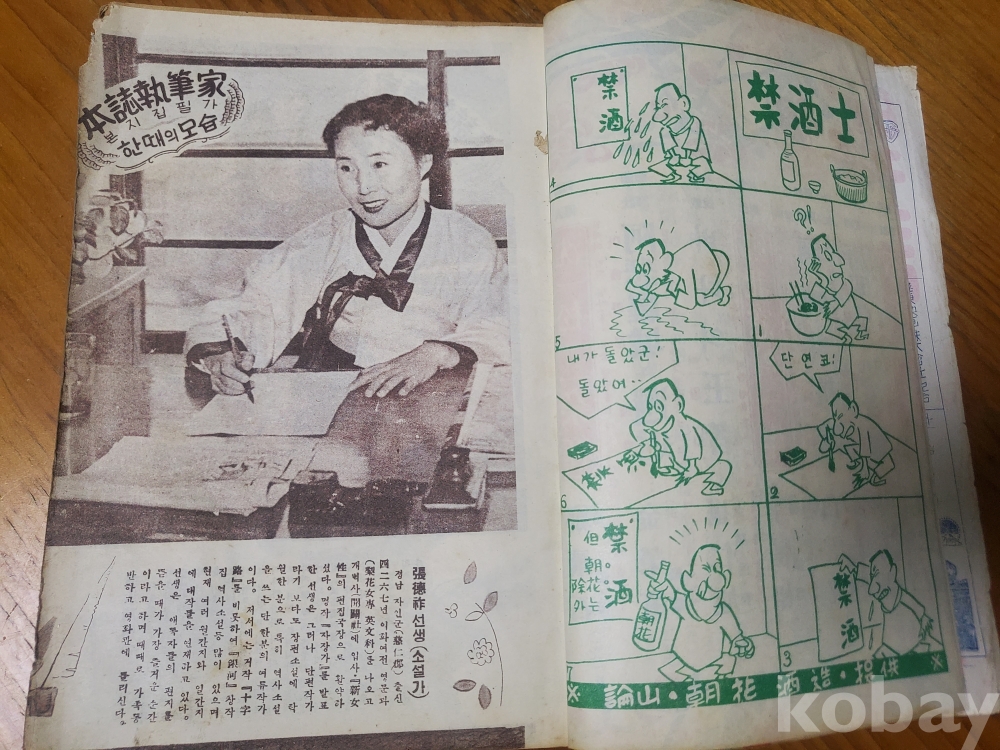 本誌執筆家
본지집필가
한때의 모습
張德祚 선생 (소설가)
경남 자신군(慈仁郡) 출신
四二六七년 이화여전 영문과
(梨花女專 英文科)를 나오고
개벽사(開闢社)에 입사·『新女
性』의 편집국장으로 활약하
셨다. 명작『자장가』를 발표
한 선생은 그러나 단편작가
라기 보다도 장편소설에 탁
월한 분으로 특히 역사소설
을 쓰는 단 한분의 여류작가
이다. 저서에는 거작『十字
路』를 비롯하여『銀河』창작
집 역사소설등 많이 있으며
현재 여러 월간지와 일간지
에 대작들을 연재하고 있다.
선생은 애독자들의 편지를
뜯을 때가 가장 즐거운 순간
이라고 하며 때때로 가족동
반하고 영화관에 들리신다.
禁酒士
?!
1
단연코!
2
禁酒
3
禁酒
4
5
내가 돌았군!
돌았어‥
6
禁酒
但 朝花는
除外
朝花
7
※ 論山·朝花酒造·提供 ※
kobay